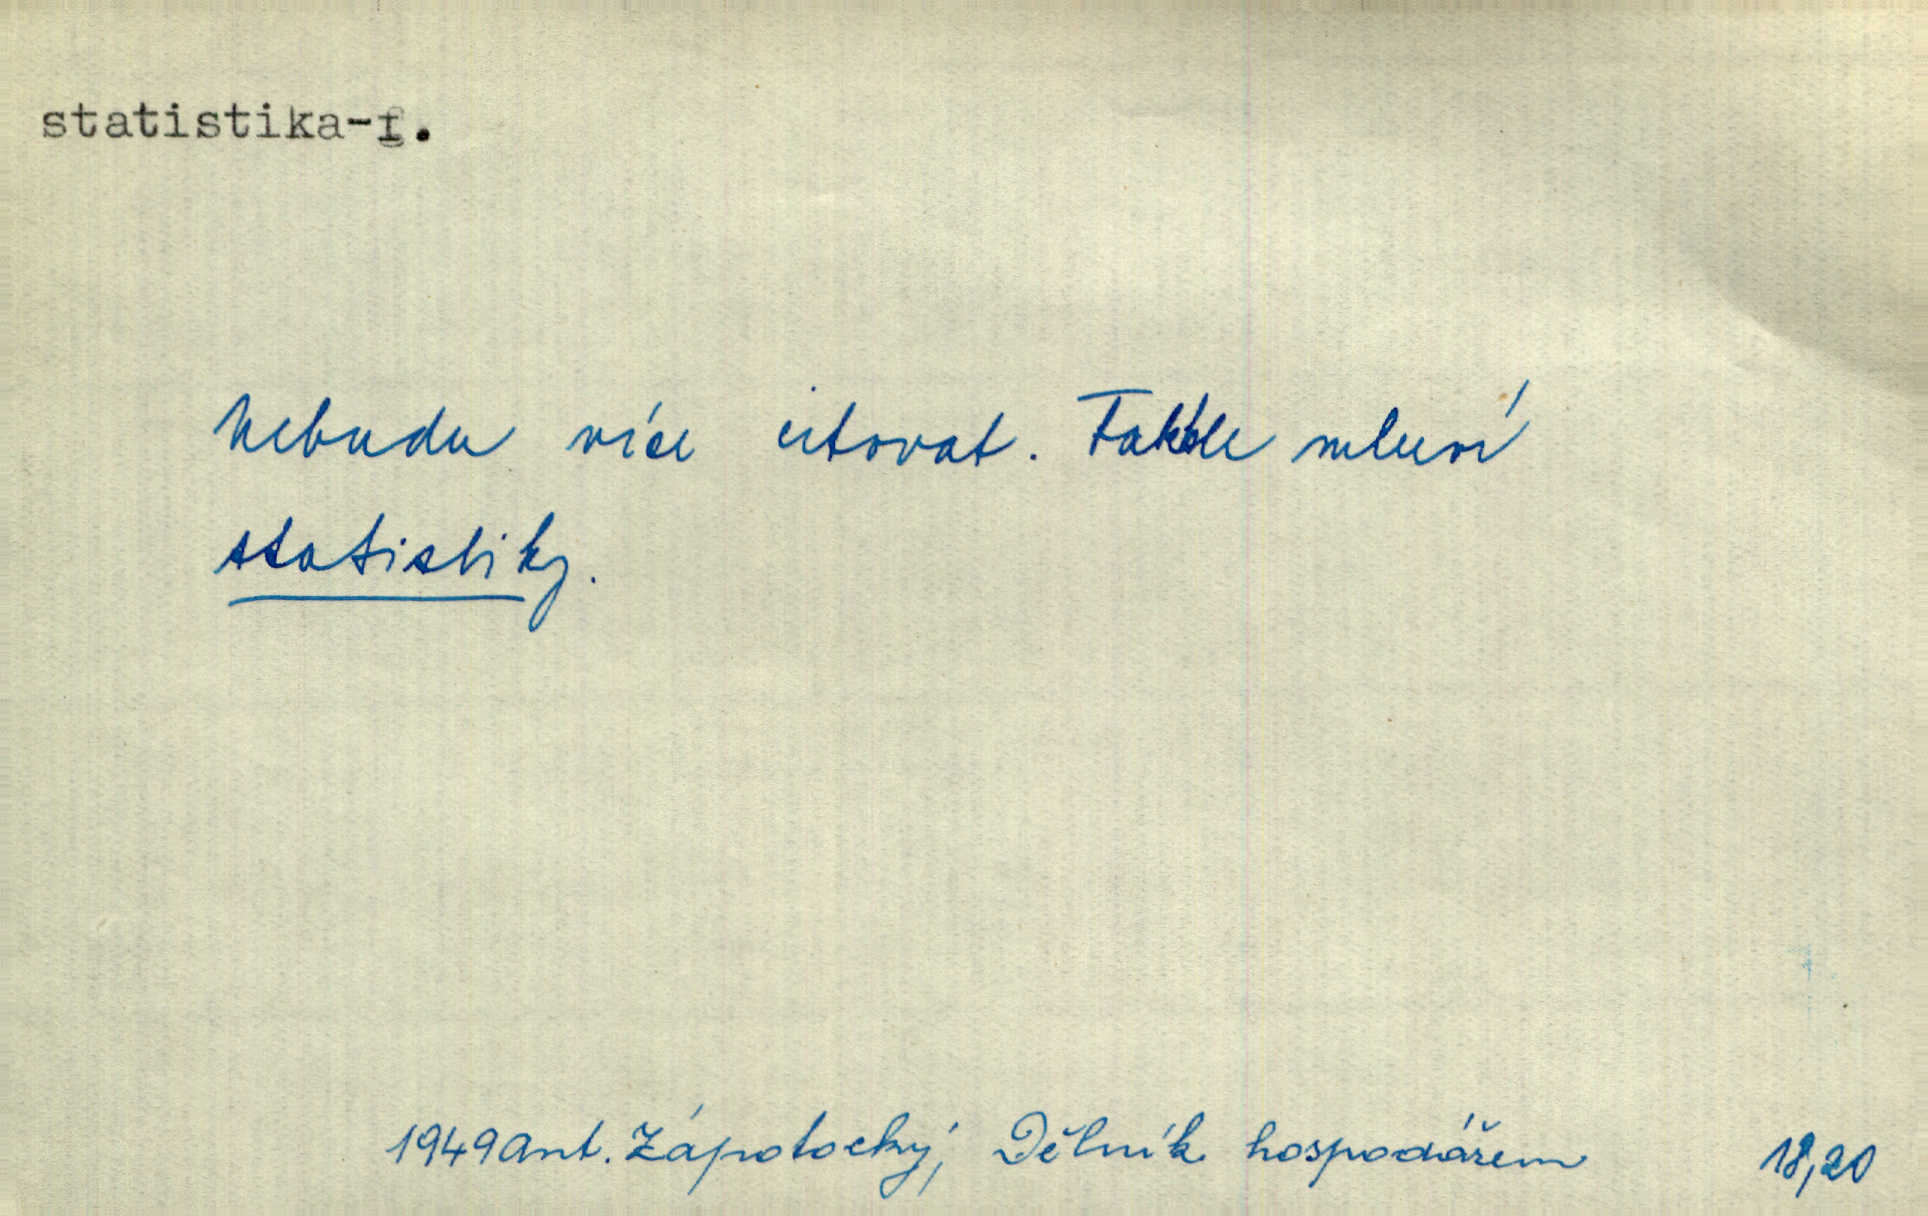 statistika-f.
Nebudu více citovat. Takhle mluví
statistiky.
1949 Ant. Zápotocký, Dělník hospodářem 18,20